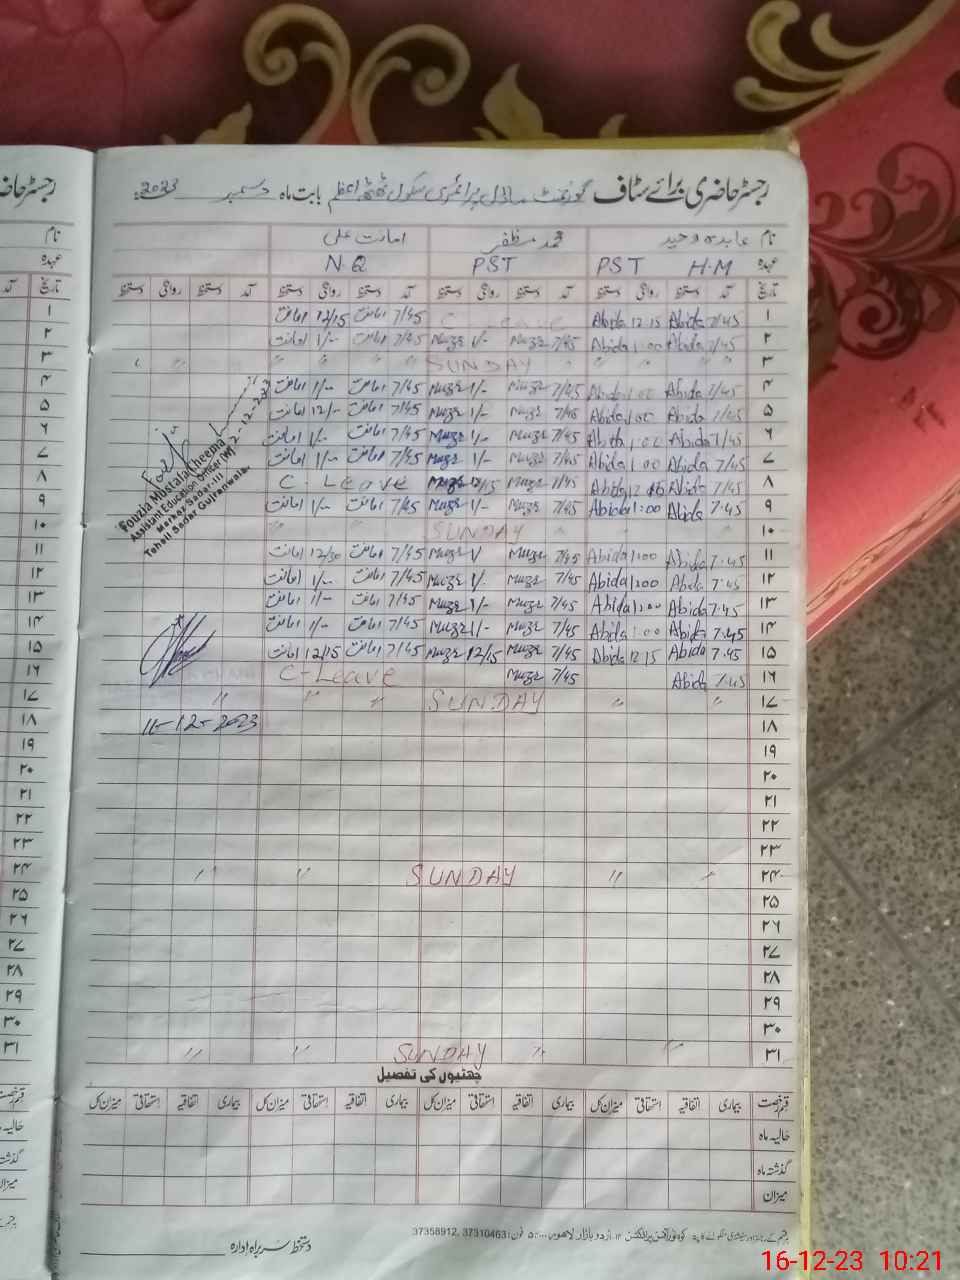 رجسٹر حاضری برائے سٹاف گورنمنٹ ماڈل پرائمری سکول ٹھٹھہ اعظم بابت ماہ دسمبر 2023
نام عابدہ وحید محمد مظفر امانت علی
عہدہ H.M PST PST N.Q
تاریخ آمد دستخط روانگی دستخط آمد دستخط روانگی دستخط آمد دستخط روانگی دستخط آمد دستخط روانگی دستخط
۱ 7/45 Abida 12:15 Abida C Leave 7/45 امانت 12/15 امانت
۲ 7/45 Abida 1:00 Abida 7/45 Muzr 1/- Muzr 7/45 امانت 1/- امانت
۳ " " " " SUNDAY " " " "
۴ 7/45 Abida 1:00 Abida 7/45 Muzr 1/- Muzr 7/45 امانت 1/- امانت
۵ 7/45 Abida 1:00 Abida 7/45 Muzr 1/- Muzr 7/45 امانت 12/- امانت
۶ 7/45 Abida 1:00 Abida 7/45 Muzr 1/- Muzr 7/45 امانت 1/- امانت
۷ 7/45 Abida 1:00 Abida 7/45 Muzr 1/- Muzr 7/45 امانت 1/- امانت
۸ 7/45 Abida Abida 7/45 Muzr 12/15 Muzr C-Leave
۹ 7:45 Abida 1:00 Abida 7/45 Muzr 1/- Muzr 7/45 امانت 1/- امانت
۱۰ SUNDAY
۱۱ 7:45 Abida 1:00 Abida 7/45 Muzr 1/ Muzr 7/45 امانت 12/30 امانت
۱۲ 7:45 Abida 1:00 Abida 7/45 Muzr 1/- Muzr 7/45 امانت 1/- امانت
۱۳ 7:45 Abida 1:00 Abida 7/45 Muzr 1/- Muzr 7/45 امانت 1/- امانت
۱۴ 7:45 Abida 1:00 Abida 7/45 Muzr 1/- Muzr 7/45 امانت 1/- امانت
۱۵ 7:45 Abida 12:15 Abida 7/45 Muzr 12/15 Muzr 7/45 امانت 12/15 امانت
۱۶ 7:45 Abida 7/45 Muzr C-Leave
۱۷ " " SUNDAY " " "
۱۸
۱۹
۲۰
۲۱
۲۲
۲۳
۲۴ " " SUNDAY " "
۲۵
۲۶
۲۷
۲۸
۲۹
۳۰
۳۱ " " SUNDAY " "
12-12-2023
Fouzia Mustafa Cheema
Assistant Education Officer (W)
Markaz Sadar-III
Tehsil Sadar Gujranwala
11-12-2023
چھٹیوں کی تفصیل
قسم رخصت بیماری اتفاقیہ استحقاقی میزان کل بیماری اتفاقیہ استحقاقی میزان کل بیماری اتفاقیہ استحقاقی میزان کل بیماری اتفاقیہ استحقاقی میزان کل
حالیہ ماہ
گذشتہ ماہ
میزان
اردو بازار لاہور فون: 37310463, 37358912
دستخط سربراہ ادارہ
نام
عہدہ
تاریخ آمد
۱
۲
۳
۴
۵
۶
۷
۸
۹
۱۰
۱۱
۱۲
۱۳
۱۴
۱۵
۱۶
۱۷
۱۸
۱۹
۲۰
۲۱
۲۲
۲۳
۲۴
۲۵
۲۶
۲۷
۲۸
۲۹
۳۰
۳۱
قسم رخصت
حالیہ ماہ
گذشتہ
میزان
16-12-23 10:21